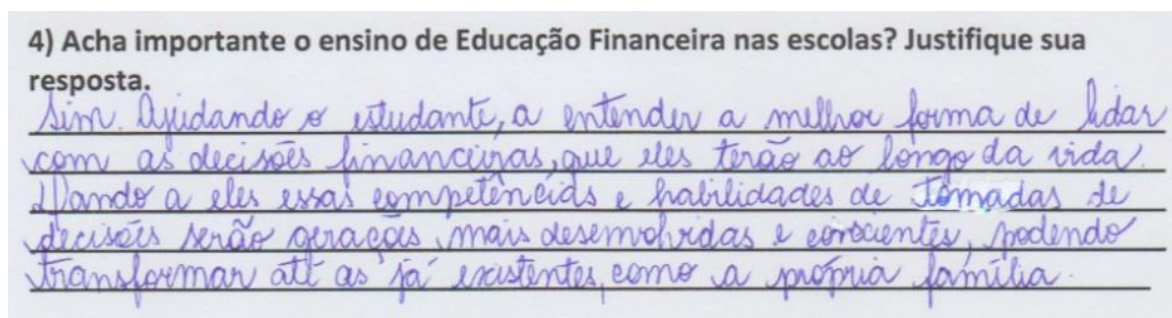 4) Acha importante o ensino de Educação Financeira nas escolas? Justifique sua
resposta.
Sim. Ajudando o estudante, a entender a melhor forma de lidar
com as decisões financeiras, que eles terão ao longo da vida.
Dando a eles essas competências e habilidades de tomadas de
decisões serão gerações, mais desemvolvidas e conscientes, podendo
transformar até as já existentes, como a própria família.